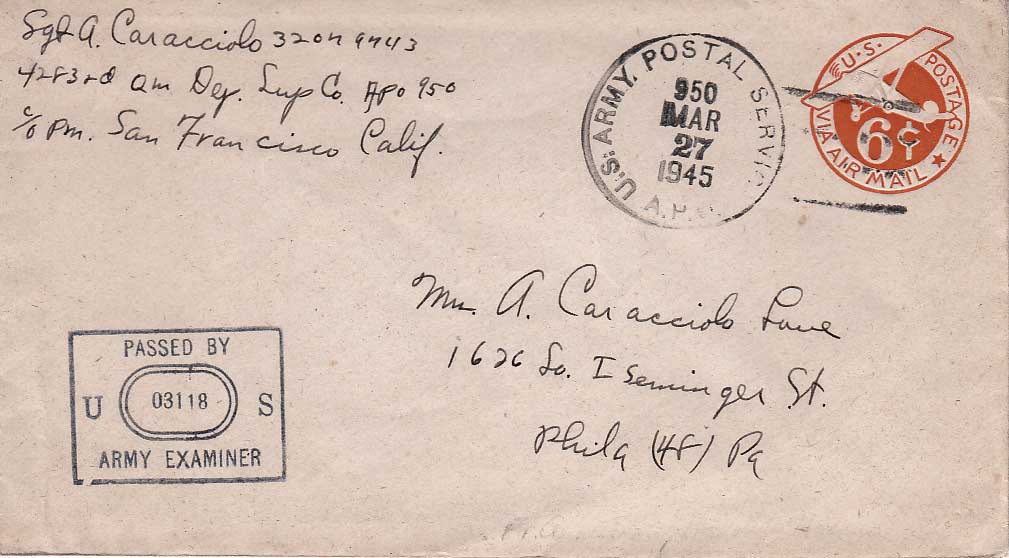 Sgt A. Caracciolo 32079743
4283rd Qm Dep. Sup Co. APO 950
c/o Pm. San Francisco Calif.
U.S. ARMY. POSTAL SERVICE
950
MAR
27
1945
A.P.O.
U.S. POSTAGE
6¢
VIA AIR MAIL
Mrs. A. Caracciolo
1626 So. Iseminger St.
Phila (48) Pa
PASSED BY
U 03118 S
ARMY EXAMINER